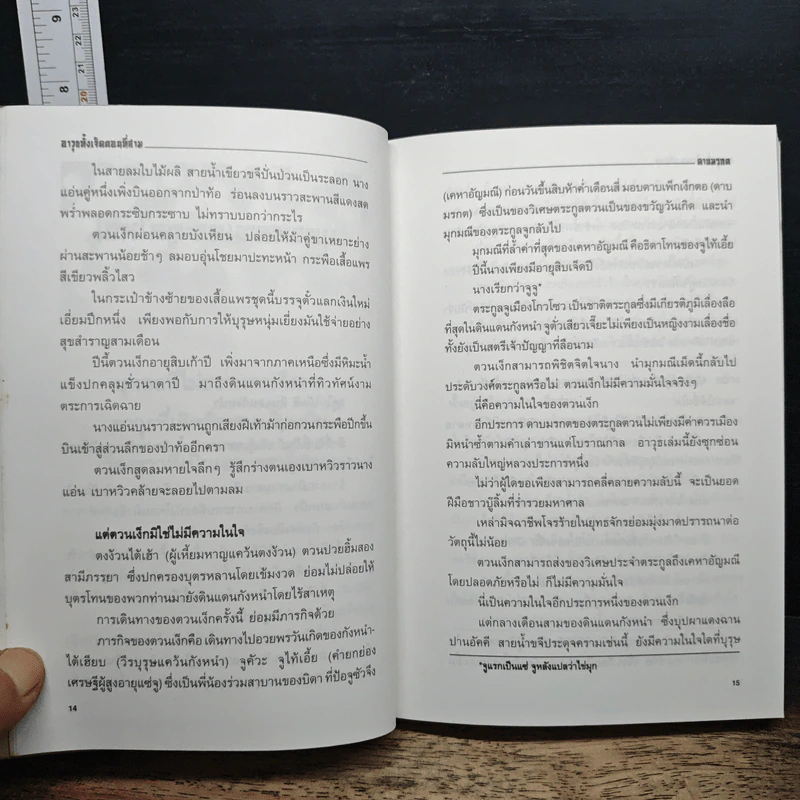 อาวุธทั้งเจ็ดตอนที่สาม
ในสายลมใบไม้ผลิ สายน้ำเขียวขจีปั่นป่วนเป็นระลอก นาง
แอ่นคู่หนึ่งเพิ่งบินออกจากป่าท้อ ร่อนลงบนราวสะพานสีแดงสด
พร่ำพลอดกระซิบกระซาบ ไม่ทราบบอกว่ากระไร
ตวนเง็กผ่อนคลายบังเหียน ปล่อยให้ม้าคู่ขาเหยาะย่าง
ผ่านสะพานน้อยช้าๆ ลมอบอุ่นโชยมาปะทะหน้า กระพือเสื้อแพร
สีเขียวพลิ้วไสว
ในกระเป๋าข้างซ้ายของเสื้อแพรชุดนี้บรรจุตั๋วแลกเงินใหม่
เอี่ยมปึกหนึ่ง เพียงพอกับการให้บุรุษหนุ่มเยี่ยงมันใช้จ่ายอย่าง
สุขสำราญสามเดือน
ปีนี้ตวนเง็กอายุสิบเก้าปี เพิ่งมาจากภาคเหนือซึ่งมีหิมะน้ำ
แข็งปกคลุมชั่วนาตาปี มาถึงดินแดนกังหนำที่ทิวทัศน์งาม
ตระการเฉิดฉาย
นางแอ่นบนราวสะพานถูกเสียงฝีเท้าม้าก่อกวนกระพือปีกขึ้น
บินเข้าสู่ส่วนลึกของป่าท้ออีกครา
ตวนเง็กสูดลมหายใจลึกๆ รู้สึกร่างตนเองเบาหวิวราวนาง
แอ่น เบาหวิวคล้ายจะลอยไปตามลม
แต่ตวนเง็กมิใช่ไม่มีความในใจ
ตงง้วนไต้เฮ้า (ผู้เหี้ยมหาญแคว้นตงง้วน) ตวนปวยฮิ้มสอง
สามีภรรยา ซึ่งปกครองบุตรหลานโดยเข้มงวด ย่อมไม่ปล่อยให้
บุตรโทนของพวกท่านมายังดินแดนกังหนำโดยไร้สาเหตุ
การเดินทางของตวนเง็กครั้งนี้ ย่อมมีภารกิจด้วย
ภารกิจของตวนเง็กคือ เดินทางไปอวยพรวันเกิดของกังหนำ-
ไต้เฮียบ (วีรบุรุษแคว้นกังหนำ) จูคัวะ จูไท้เอี้ย (คำยกย่อง
เศรษฐีผู้สูงอายุแซ่จู) ซึ่งเป็นพี่น้องร่วมสาบานของบิดา ที่ป้อจูซัวจึง
14
ดาบมรกต
(เคหาอัญมณี) ก่อนวันขึ้นสิบห้าค่ำเดือนสี่ มอบดาบเพ็กเง็กตอ (ดาบ
มรกต) ซึ่งเป็นของวิเศษตระกูลตวนเป็นของขวัญวันเกิด และนำ
มุกมณีของตระกูลจูกลับไป
มุกมณีที่ล้ำค่าที่สุดของเคหาอัญมณี คือธิดาโทนของจูไท้เอี้ย
ปีนี้นางเพียงมีอายุสิบเจ็ดปี
นางเรียกว่าจูจู*
ตระกูลจูเมืองโกวโซว เป็นชาติตระกูลซึ่งมีเกียรติภูมิเลื่องลือ
ที่สุดในดินแดนกังหนำ จูตั่วเสียวเจี๊ยะไม่เพียงเป็นหญิงงามเลื่องชื่อ
ทั้งยังเป็นสตรีเจ้าปัญญาที่ลือนาม
ตวนเง็กสามารถพิชิตจิตใจนาง นำมุกมณีเม็ดนี้กลับไป
ประดับวงศ์ตระกูลหรือไม่ ตวนเง็กไม่มีความมั่นใจจริงๆ
นี่คือความในใจของตวนเง็ก
อีกประการ ดาบมรกตของตระกูลตวนไม่เพียงมีค่าควรเมือง
มิหนำซ้ำตามคำเล่าขานแต่โบราณกาล อาวุธเล่มนี้ยังซุกซ่อน
ความลับใหญ่หลวงประการหนึ่ง
ไม่ว่าผู้ใดขอเพียงสามารถคลี่คลายความลับนี้ จะเป็นยอด
ฝีมือชาวบู๊ลิ้มที่ร่ำรวยมหาศาล
เหล่ามิจฉาชีพโจรร้ายในยุทธจักรย่อมมุ่งมาดปรารถนาต่อ
วัตถุนี้ไม่น้อย
ตวนเง็กสามารถส่งของวิเศษประจำตระกูลถึงเคหาอัญมณี
โดยปลอดภัยหรือไม่ ก็ไม่มีความมั่นใจ
นี่เป็นความในใจอีกประการหนึ่งของตวนเง็ก
แต่กลางเดือนสามของดินแดนกังหนำ ซึ่งบุปผาแดงฉาน
ปานอัคคี สายน้ำขจีประดุจครามเช่นนี้ ยังมีความในใจใดที่บุรุษ
*จูแรกเป็นแซ่ จูหลังแปลว่าไข่มุก
15
9
8
23
22
21
20